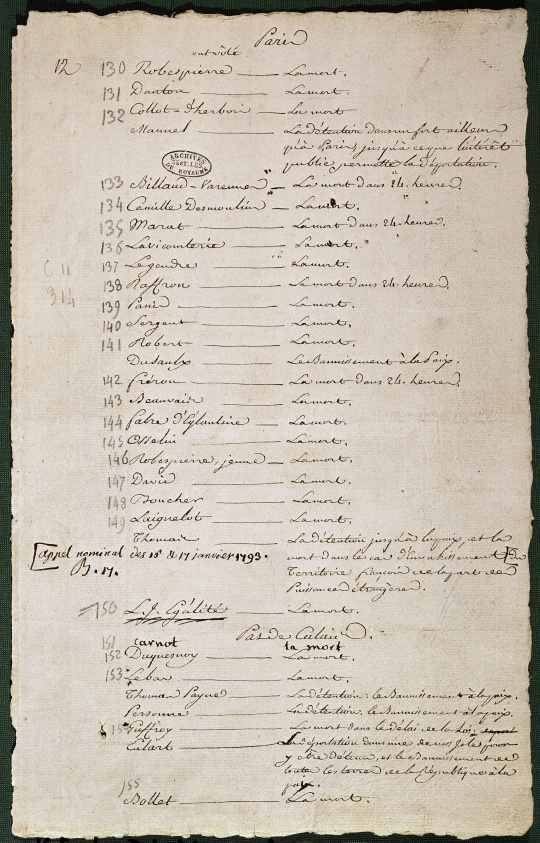 Paris
ont voté
12 130 Robespierre — La mort.
131 Danton — La mort.
132 Collot-d'herbois — La mort
Manuel — La détention dans un fort ailleurs
qu'à Paris, jusqu'à ce que l'intérêt
public permette la déportation.
ARCHIVES
SECT. LEG.
DU ROYAUME
133 Billaud-Varennes — La mort dans 24. heures.
134 Camille Desmoulins — La mort.
135 Marat — La mort dans 24. heures.
136 Lavicomterie — La mort.
137 Legendre — La mort.
C II
314
138 Raffron — La mort dans 24. heures.
139 Panis — La mort.
140 Sergent — La mort.
141 Robert — La mort.
Dusaulx — Le Bannissement à la Paix.
142 fréron — La mort dans 24. heures.
143 Beauvais — La mort.
144 fabre d'Eglantine — La mort.
145 Osselin — La mort.
146 Robespierre, jeune — La mort.
147 David — La mort.
148 Boucher — La mort.
149 Laignelot — La mort.
Thomas — La détention jusqu'à la paix, et la
[appel nominal des 16 & 17 janvier 1793. mort dans le cas d'envahissement] du
B. 17. Territoire français de la part des
Puissances étrangères.
150 L.J. Egalité — La mort.
Pas de Calais.
151 carnot la mort
152 Duquesnoy — La mort.
153 Lebas — La mort.
Thomas Payne — La détention; le Bannissement à la paix.
Personne — La détention, le Bannissement à la paix.
Guffroy — La mort dans le délai de la Loi.
Enlart — La déportation dans une de nos Isles pour
y être détenu, et le Bannissement de
toutes les terres de la République à la
paix.
155
Bollet — La mort.